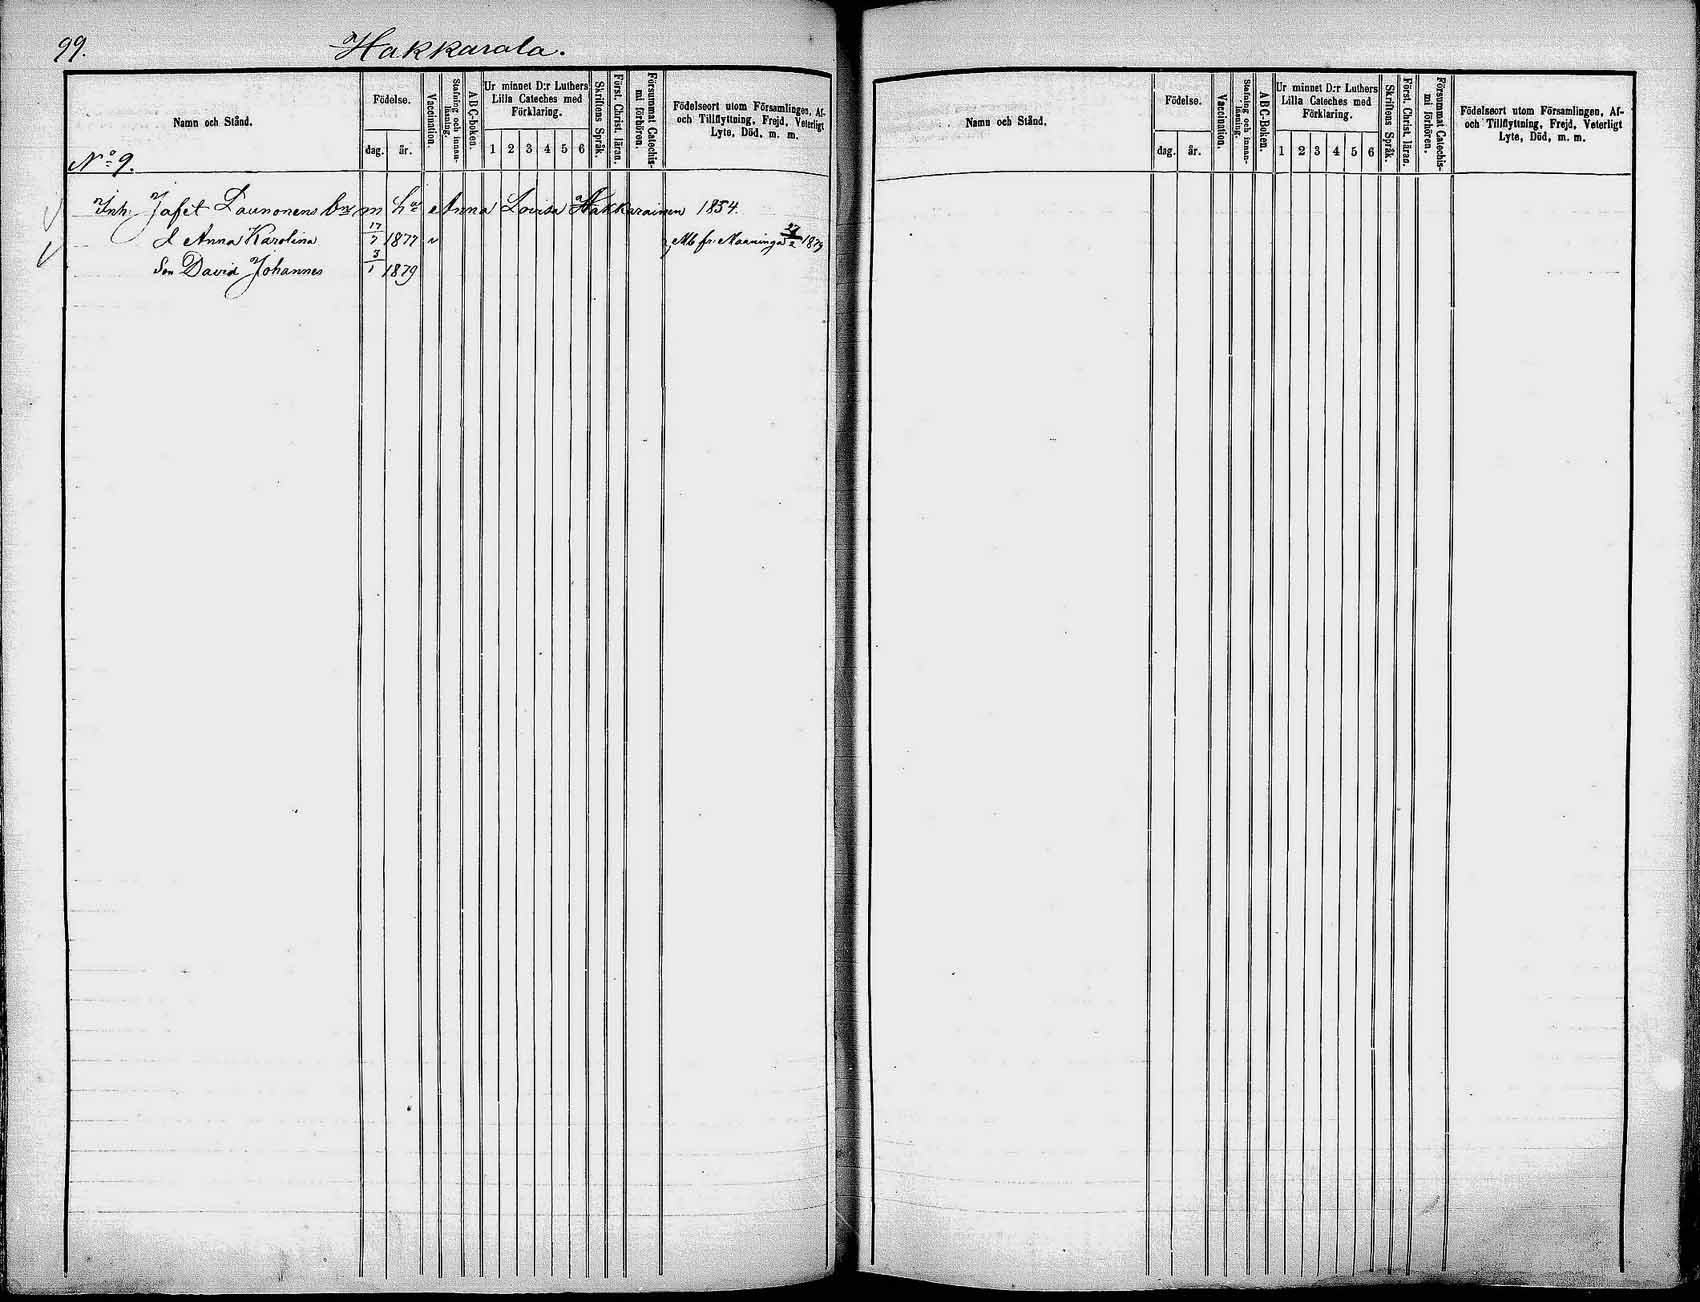 99. Hakkarala.
Namn och Stånd.
Födelse.
dag. år.
Vaccination.
Stafning och innan-läsning.
ABC-boken.
Ur minnet D:r Luthers
Lilla Cateches med
Förklaring.
1 2 3 4 5 6
Skriftens Språk.
Först. Christ. läran.
Försummat Catechis-
mi förhören.
Födelseort utom Församlingen, Af-
och Tillflyttning, Frejd, Veterligt
Lyte, Död, m. m.
No 9.
Inh. Jafet Launonens m Anna Lovisa Hakkarainen 1854.
d Anna Karolina 17/7 1877 v Mb fr. Maaninga 1879
Son David Johannes 3/1 1879
Namn och Stånd.
Födelse.
dag. år.
Vaccination.
Stafning och innan-läsning.
ABC-Boken.
Ur minnet D:r Luthers
Lilla Cateches med
Förklaring.
1 2 3 4 5 6
Skriftens Språk.
Först. Christ. läran.
Försummat Catechis-
mi förhören.
Födelseort utom Församlingen, Af-
och Tillflyttning, Frejd, Veterligt
Lyte, Död, m. m.